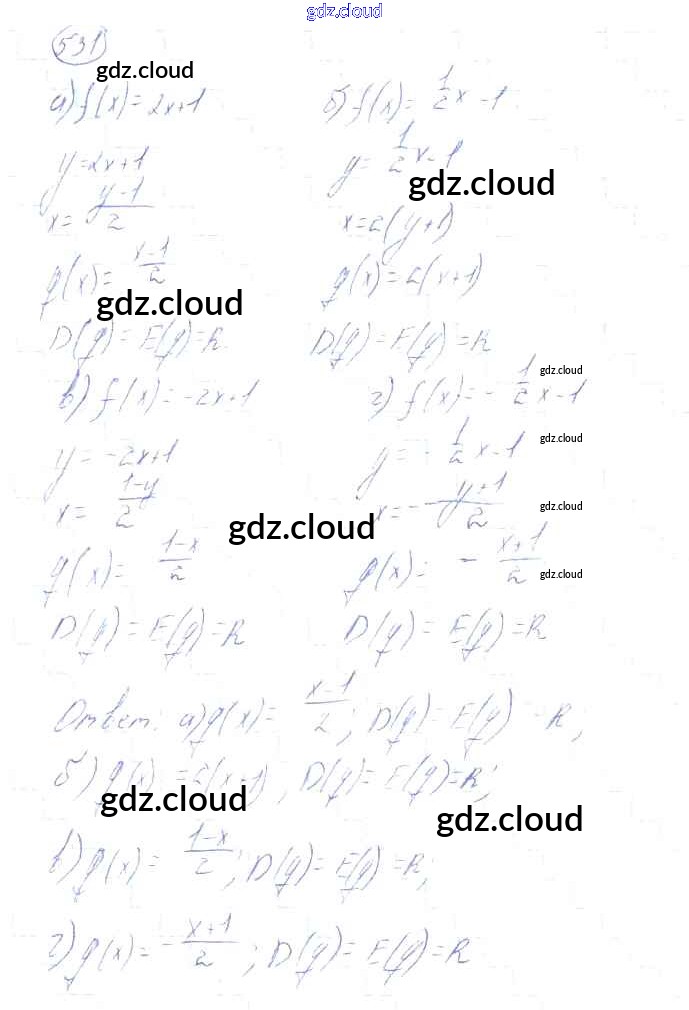 gdz.cloud
531
gdz.cloud
а) f(x) = 2x+1
б) f(x) = 1/2 x - 1
y = 2x+1
y = 1/2 x - 1
gdz.cloud
x = (y-1)/2
x = 2(y+1)
g(x) = (x-1)/2
g(x) = 2(x+1)
gdz.cloud
D(g) = E(g) = R
D(g) = E(g) = R
gdz.cloud
в) f(x) = -2x+1
г) f(x) = - 1/2 x - 1
y = -2x+1
y = - 1/2 x - 1
gdz.cloud
x = (1-y)/2
x = - (y+1)/2
gdz.cloud
gdz.cloud
g(x) = (1-x)/2
g(x) = - (x+1)/2
gdz.cloud
D(g) = E(g) = R
D(g) = E(g) = R
Ответ: а) g(x) = (x-1)/2; D(g) = E(g) = R;
б) g(x) = 2(x+1); D(g) = E(g) = R;
gdz.cloud
gdz.cloud
в) g(x) = (1-x)/2; D(g) = E(g) = R;
г) g(x) = - (x+1)/2; D(g) = E(g) = R